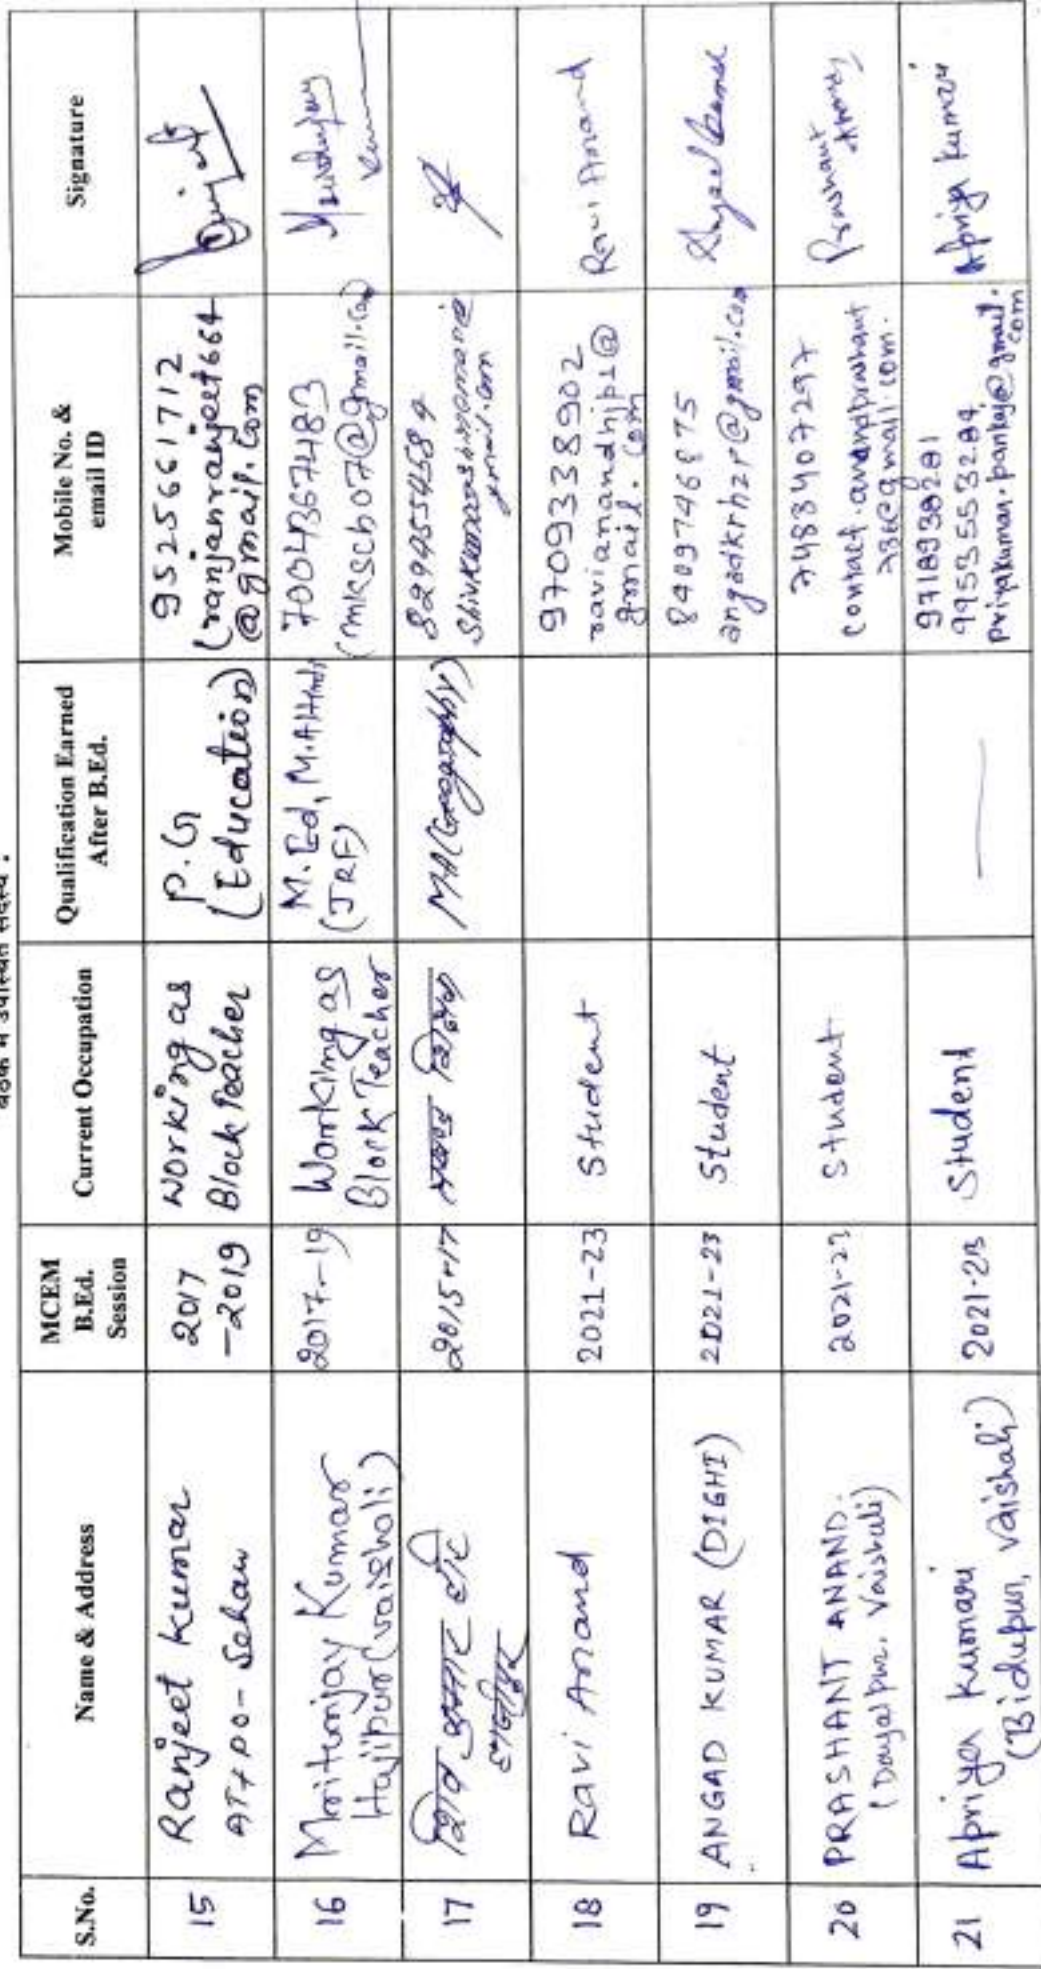 बैठक में उपस्थित सदस्य :
S.No.
Name & Address
MCEM
B.Ed.
Session
Current Occupation
Qualification Earned
After B.Ed.
Mobile No. &
email ID
Signature
15
Ranjeet Kumar
AT+PO- Sehan
2017
-2019
Working as
Block Teacher
P.G
(Education)
9525661712
(ranjanranjeet664
@gmail.com
16
Mritunjay Kumar
Hajipur (vaishali)
2017-19
Working as
Block Teacher
M.Ed, M.A(Hindi)
(JRF)
7004367483
(mksscb07@gmail.com)
Mritunjay
Kumar
17
शिव कुमार
हाजीपुर
2015-17
प्रखंड शिक्षक
MA(Geography)
8299455458
18
Ravi Anand
2021-23
Student
9709338902
ravianandhjp1@
gmail.com
Ravi Anand
19
ANGAD KUMAR (DIGHI)
2021-23
Student
8409746875
angadkrhzr@gmail.com
Angad Kumar
20
PRASHANT ANAND.
(Dayalpur, Vaishali)
2021-23
Student
7488407297
contact.anandprashant
736@gmail.com.
Prashant
Anand
21
Apriya Kumari
(Bidupur, Vaishali)
2021-23
Student
—
9718938281
9953553284
priyakumari.pankaj@gmail.
com
Apriya Kumari